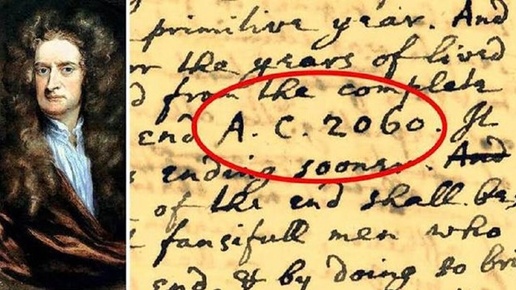 primitive year. And
the years of lived
d from the complete
end A. C. 2060. It
ending sooner. And
of the end shall be
t fansifull men who
end, & by doing so bri